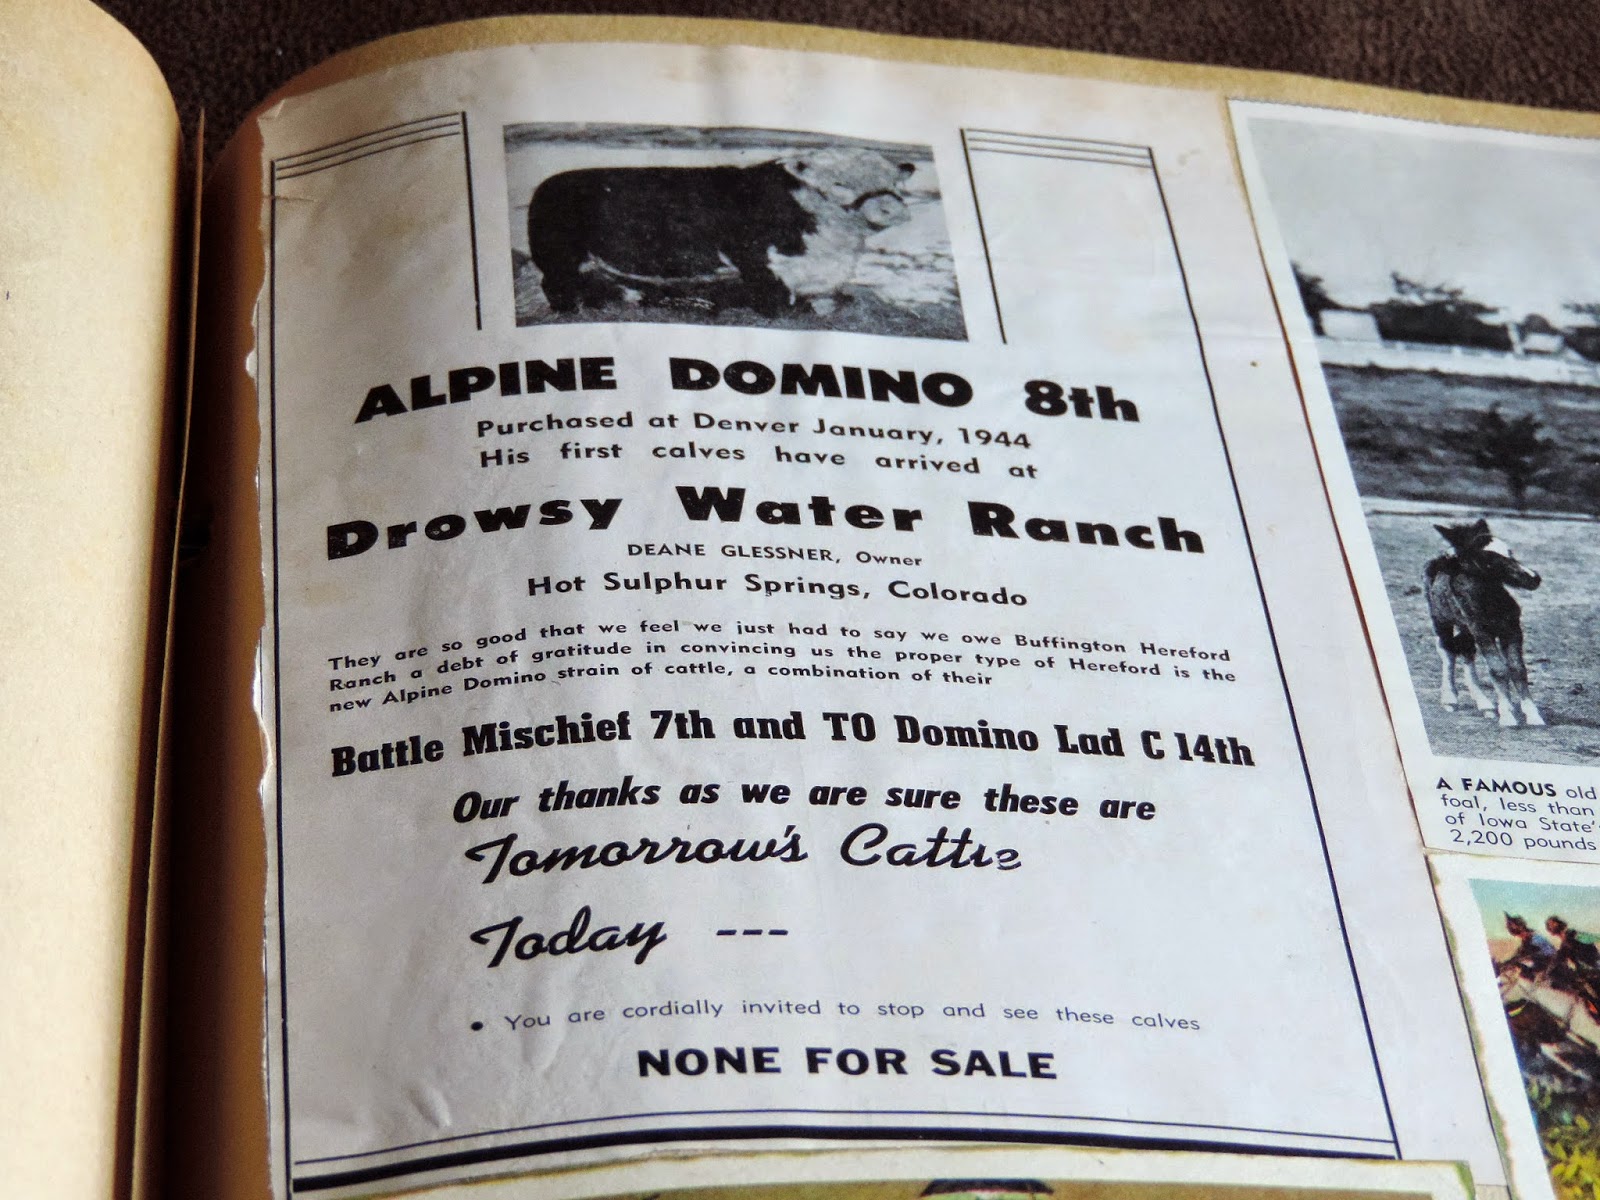 ALPINE DOMINO 8th
Purchased at Denver January, 1944
His first calves have arrived at
Drowsy Water Ranch
DEANE GLESSNER, Owner
Hot Sulphur Springs, Colorado
They are so good that we feel we just had to say we owe Buffington Hereford
Ranch a debt of gratitude in convincing us the proper type of Hereford is the
new Alpine Domino strain of cattle, a combination of their
Battle Mischief 7th and TO Domino Lad C 14th
Our thanks as we are sure these are
Tomorrow's Cattle
Today ---
• You are cordially invited to stop and see these calves
NONE FOR SALE
A FAMOUS old
foal, less than
of Iowa State'
2,200 pounds